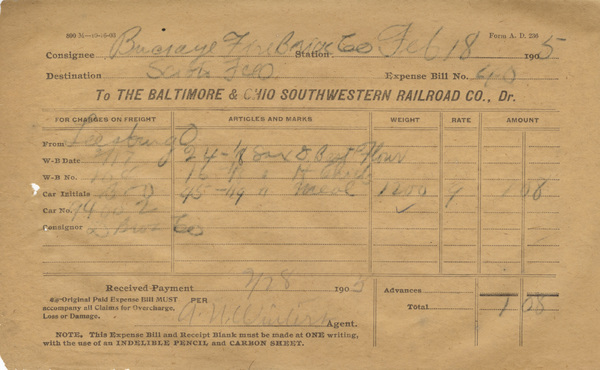 Form A. D. 236
Consignee Fire Brick Co Station Feb 18 1905
Destination Expense Bill No. 40
To THE BALTIMORE & OHIO SOUTHWESTERN RAILROAD CO., Dr.
FOR CHARGES ON FREIGHT ARTICLES AND MARKS WEIGHT RATE AMOUNT
From Leesburg O
W-B Date 2/17 24-1/8 Sax Flour
W-B No. 16
Car Initials B & O Meal 1200 9 1 08
Car No.
Consignor Bros Co
Received Payment 2/28 1905 Advances
Original Paid Expense Bill MUST PER Total 1 08
accompany all Claims for Overcharge,
Loss or Damage. Agent.
NOTE. This Expense Bill and Receipt Blank must be made at ONE writing,
with the use of an INDELIBLE PENCIL and CARBON SHEET.